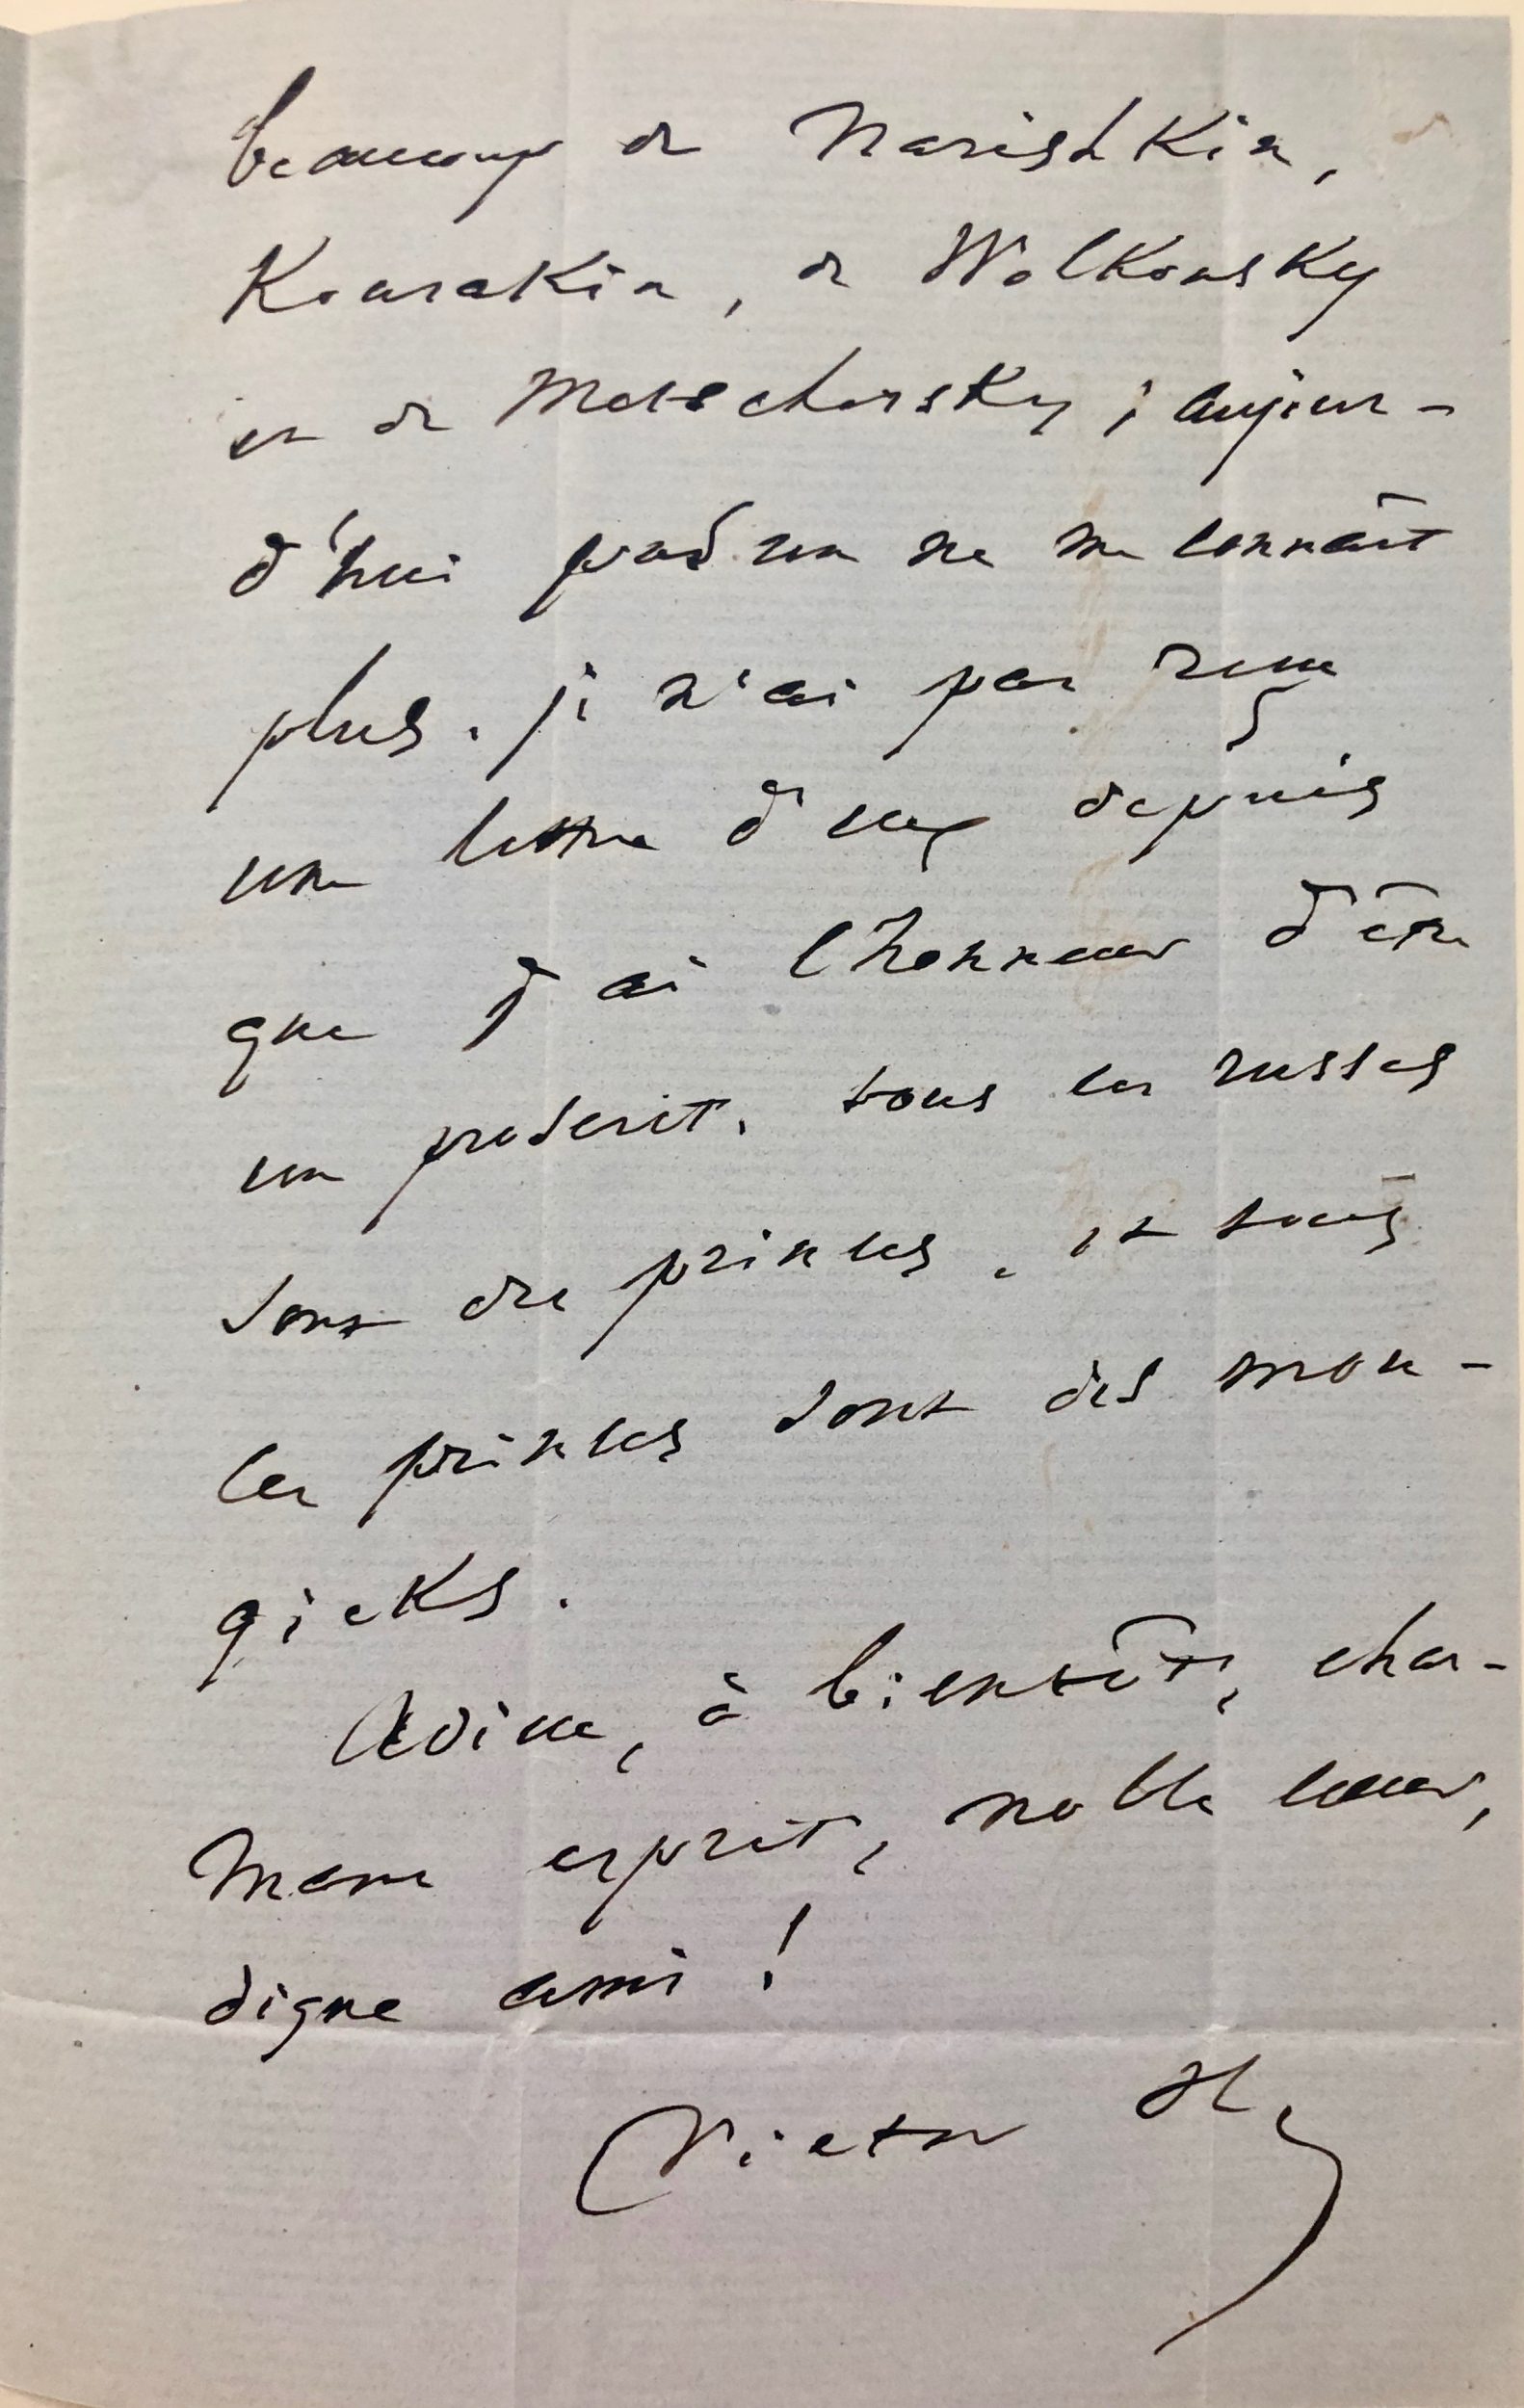 beaucoup de Narishkin,
Kourakin, de Wolkonsky
et de Metschersky ; aujour-
d'hui pas un ne me connaît
plus. je n'ai pas reçu
une lettre d'eux depuis
que j'ai l'honneur d'être
un proscrit. tous les russes
sont des princes, et tous
les princes sont des mou-
gicks.
Adieu, à bientôt, char-
mant esprit, noble cœur,
digne ami !
Victor H